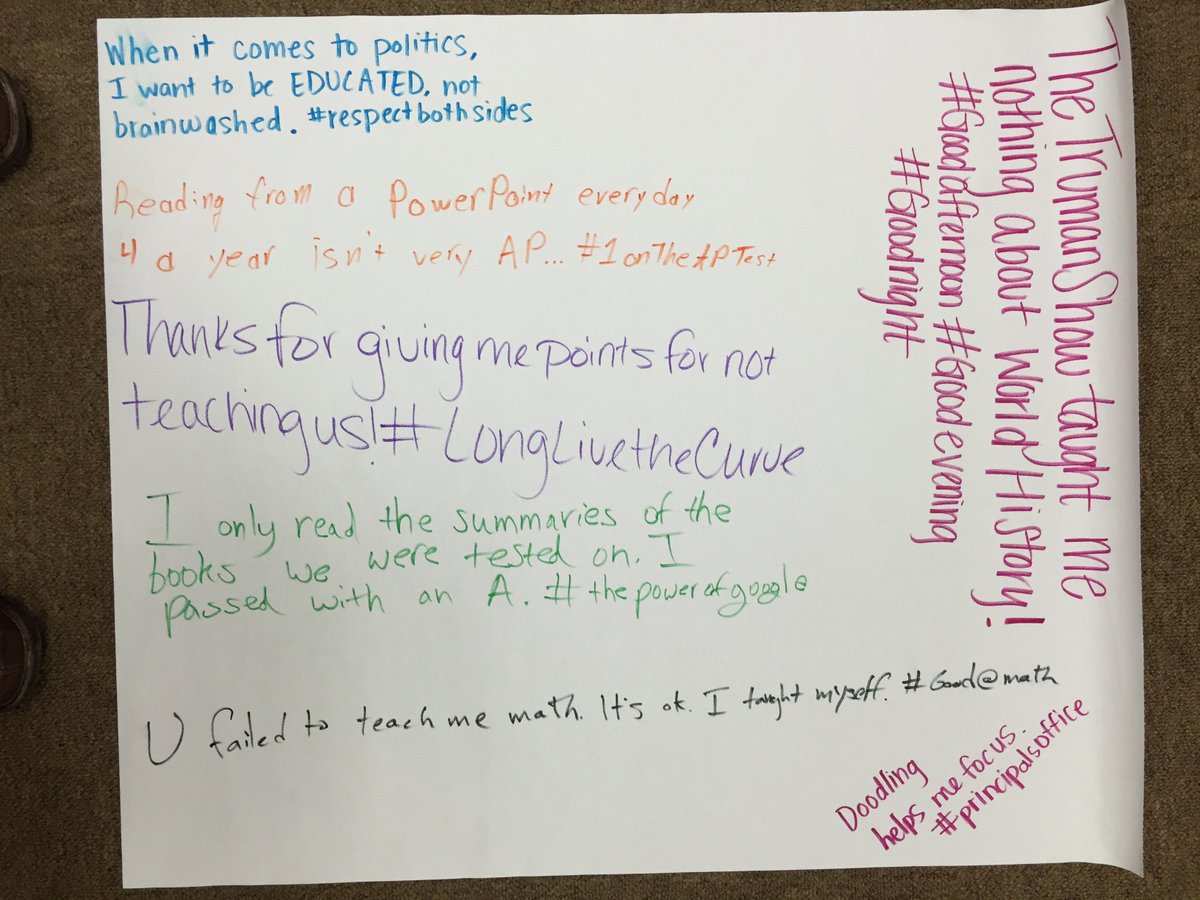 When it comes to politics,
I want to be EDUCATED, not
brainwashed. #respectbothsides
Reading from a PowerPoint everyday
4 a year isn't very AP... #1onTheAPTest
Thanks for giving me points for not
teaching us! #LongLivetheCurve
I only read the summaries of the
books we were tested on. I
passed with an A. #thepowerofgoogle
U failed to teach me math. It's ok. I taught myself. #Good@math
The Truman Show taught me
nothing about World History!
#Goodafternoon #Goodevening
#Goodnight
Doodling
helps me focus.
#principalsoffice